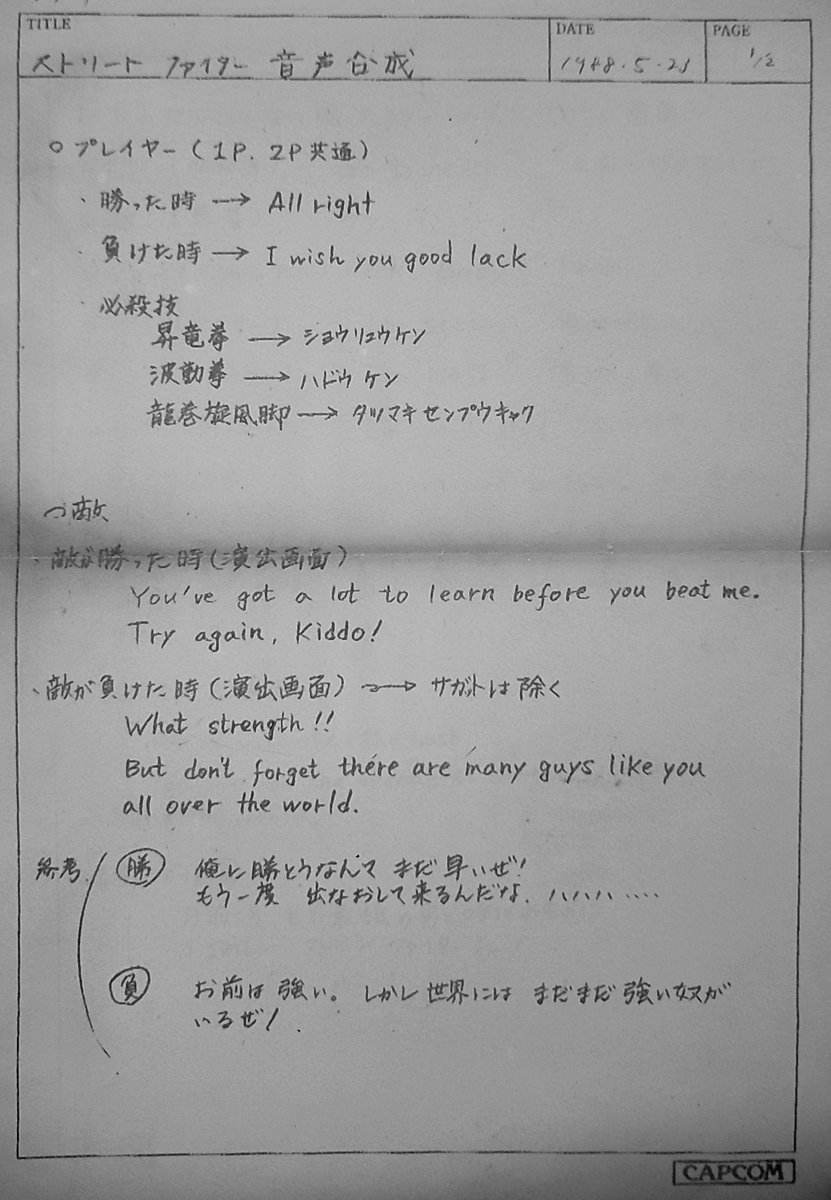 TITLE
ストリート ファイター 音声合成
DATE
PAGE
1/2
○ プレイヤー(1P. 2P共通)
・勝った時 → All right
・負けた時 → I wish you good lack
・必殺技
昇竜拳 → ショウリュウケン
波動拳 → ハドウケン
龍巻旋風脚 → タツマキセンプウキャク
○敵
・敵が勝った時(演出画面)
You've got a lot to learn before you beat me.
Try again, Kiddo!
・敵が負けた時(演出画面) → サガットは除く
What strength!!
But don't forget there are many guys like you
all over the world.
参考
勝 俺に勝とうなんて まだ早いぜ!
もう一度 出なおして来るんだな. ハハハハ ‥‥
負 お前は強い。しかし世界には まだまだ強い奴が
いるぜ!
CAPCOM